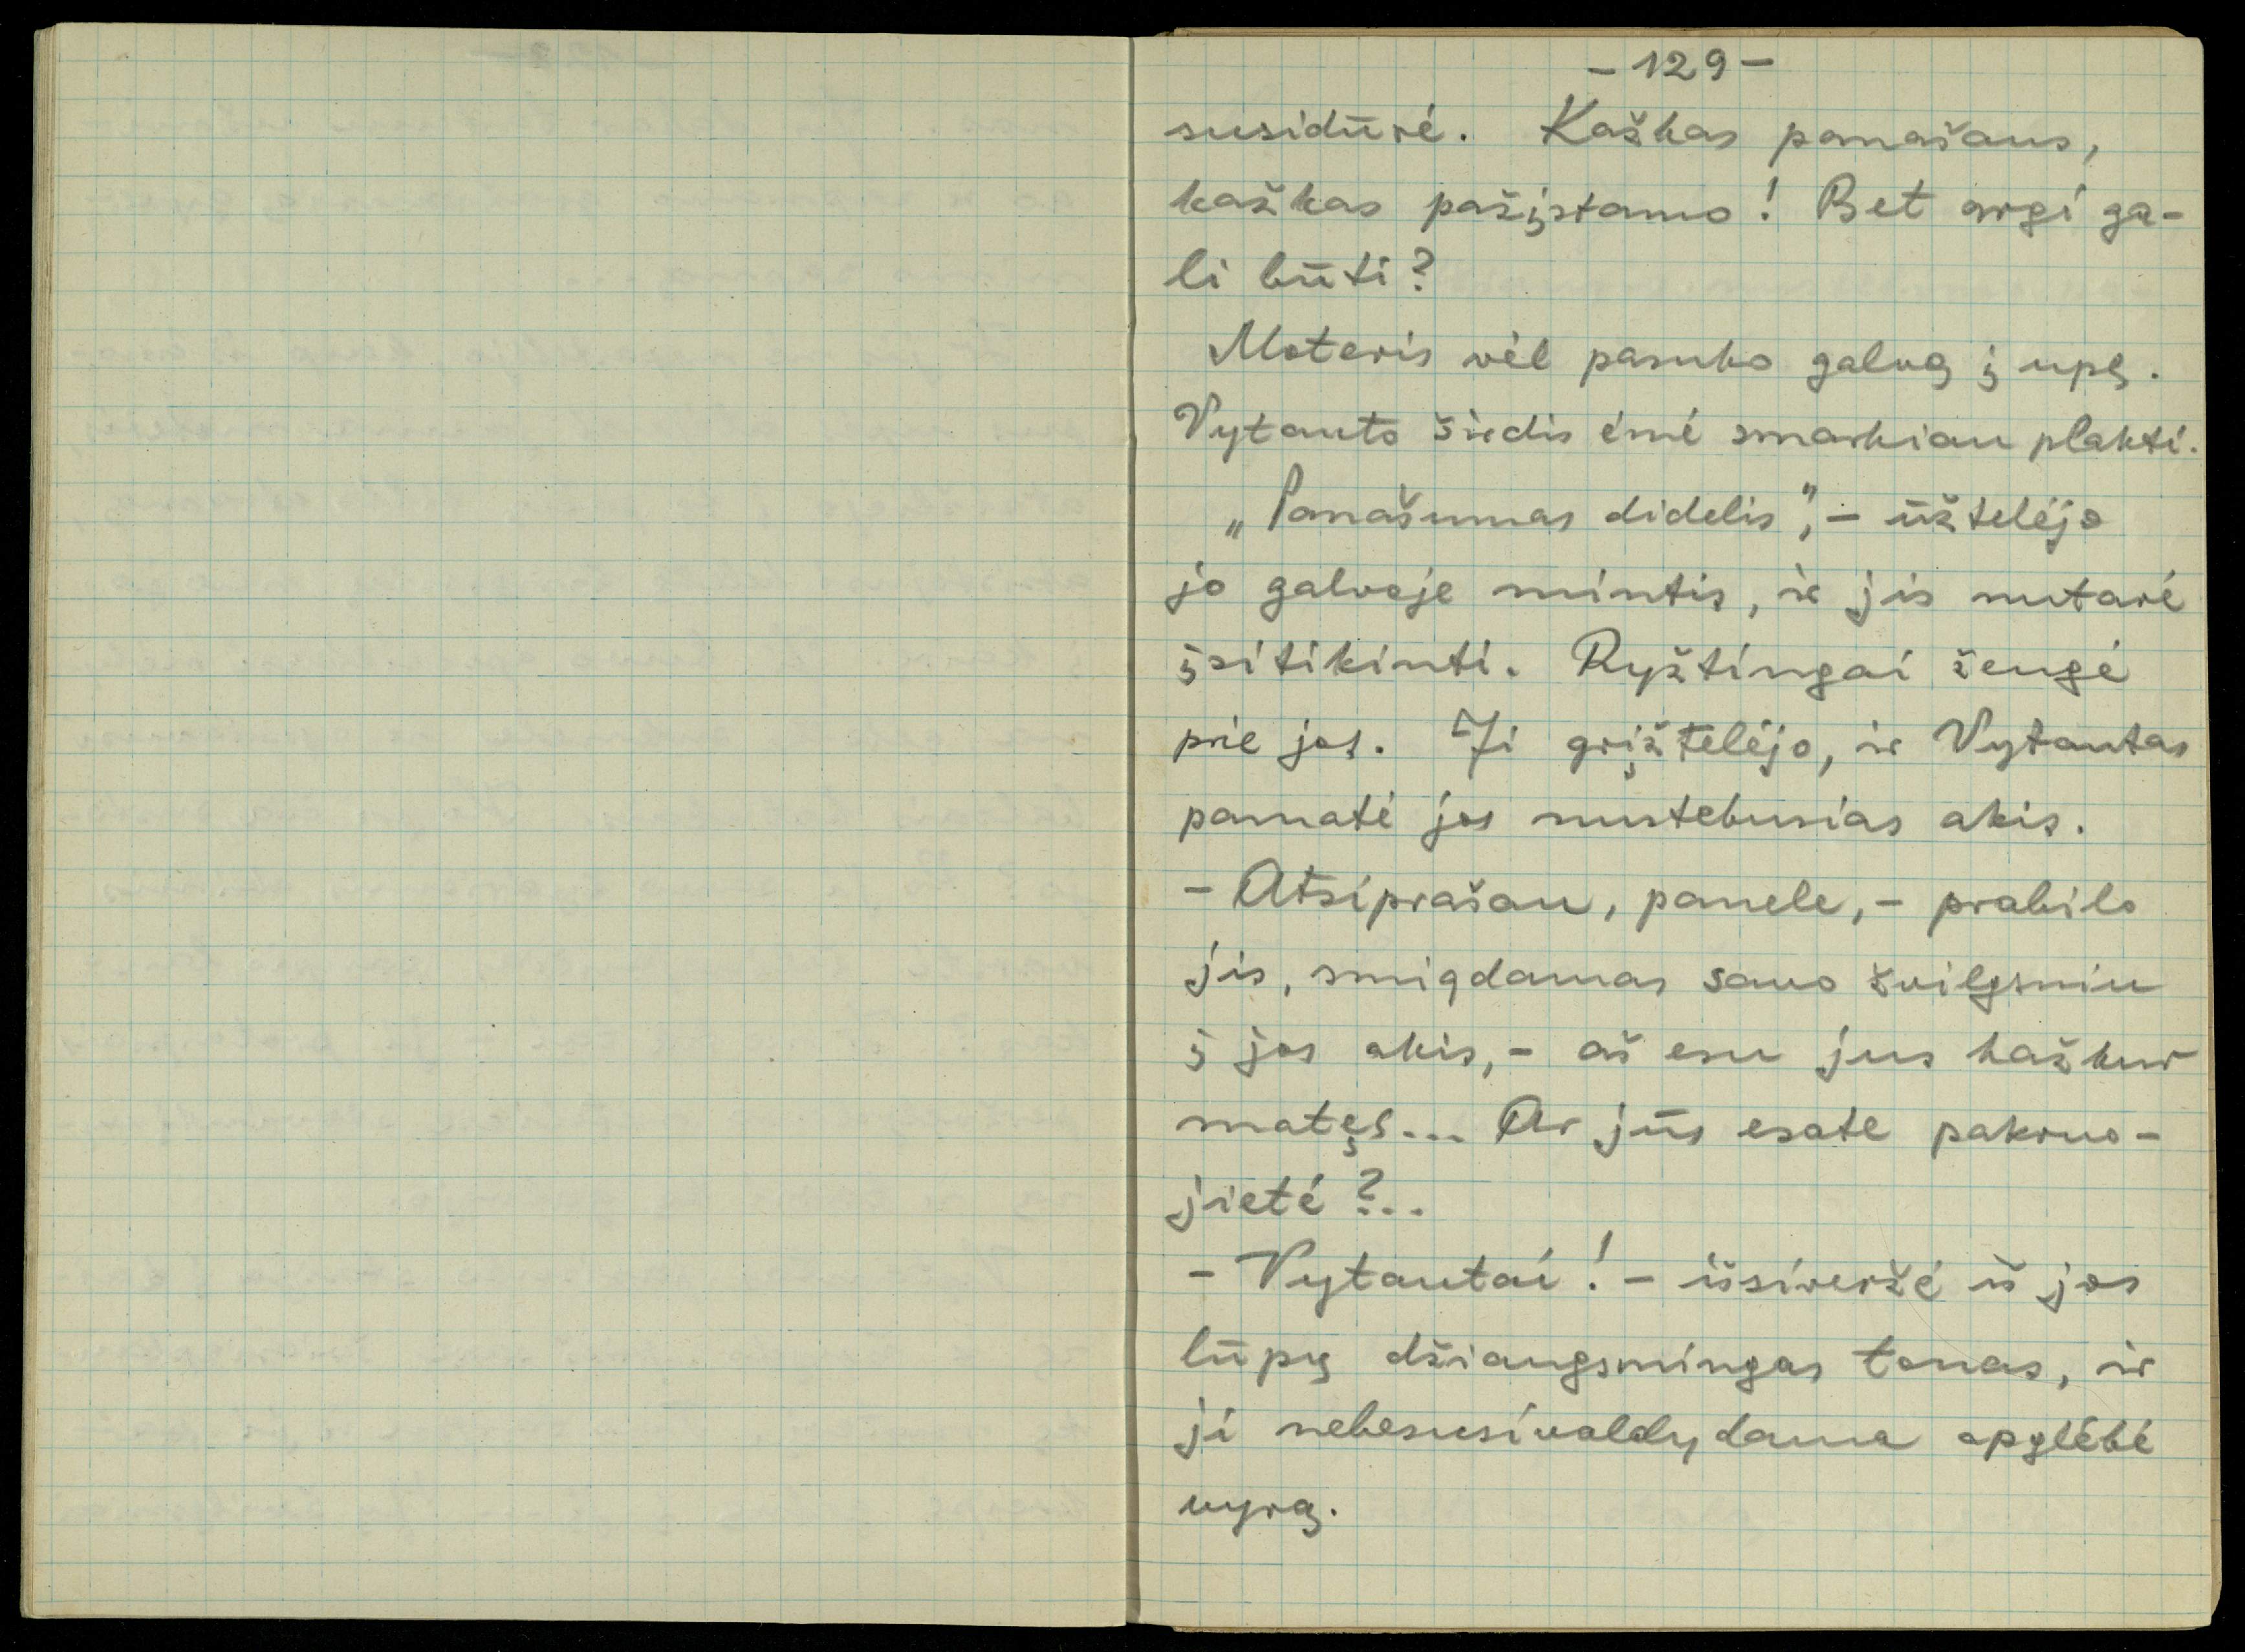 - 129 -
susidūrė. Kažkas panašaus,
kažkas pažįstamo! Bet argi ga-
li būti?
Moteris vėl pasuko galvą į upę.
Vytauto širdis ėmė smarkiau plakti.
„Panašumas didelis", - ūžtelėjo
jo galvoje mintis, ir jis nutarė
įsitikinti. Ryžtingai žengė
prie jos. Ji grįžtelėjo, ir Vytautas
pamatė jos nustebusias akis.
- Atsiprašau, panele, - prabilo
jis, smigdamas savo žvilgsniu
į jos akis, - aš esu jus kažkur
matęs... Ar jūs esate pakruo-
jietė?..
- Vytautai! - išsiveržė iš jos
lūpų džiaugsmingas tonas, ir
ji nebesusivaldydama apglėbė
vyrą.